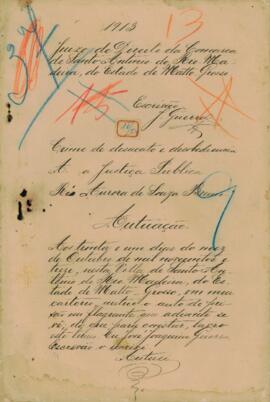 1913
13
Juizo de Direito da Comarca
de Santo Antonio do Rio Ma-
deira, do Estado de Matto Grosso
Escrivão
J. Guerra
Crime de desacato e desobediencia
A. a Justiça Publica
Ré Aurora de Souza
Autuação
Aos trinta e um dias do mez
de Outubro de mil novecentos e
treze, nesta Villa de Santo An-
tonio do Rio Madeira, do Es-
tado de Matto Grosso, em meu
cartorio, autuei o auto de pri-
são em flagrante que adiante se
vê; do que para constar, lavro
este termo. Eu José Joaquim Guerra
escrivão o escrevi.
Autuei